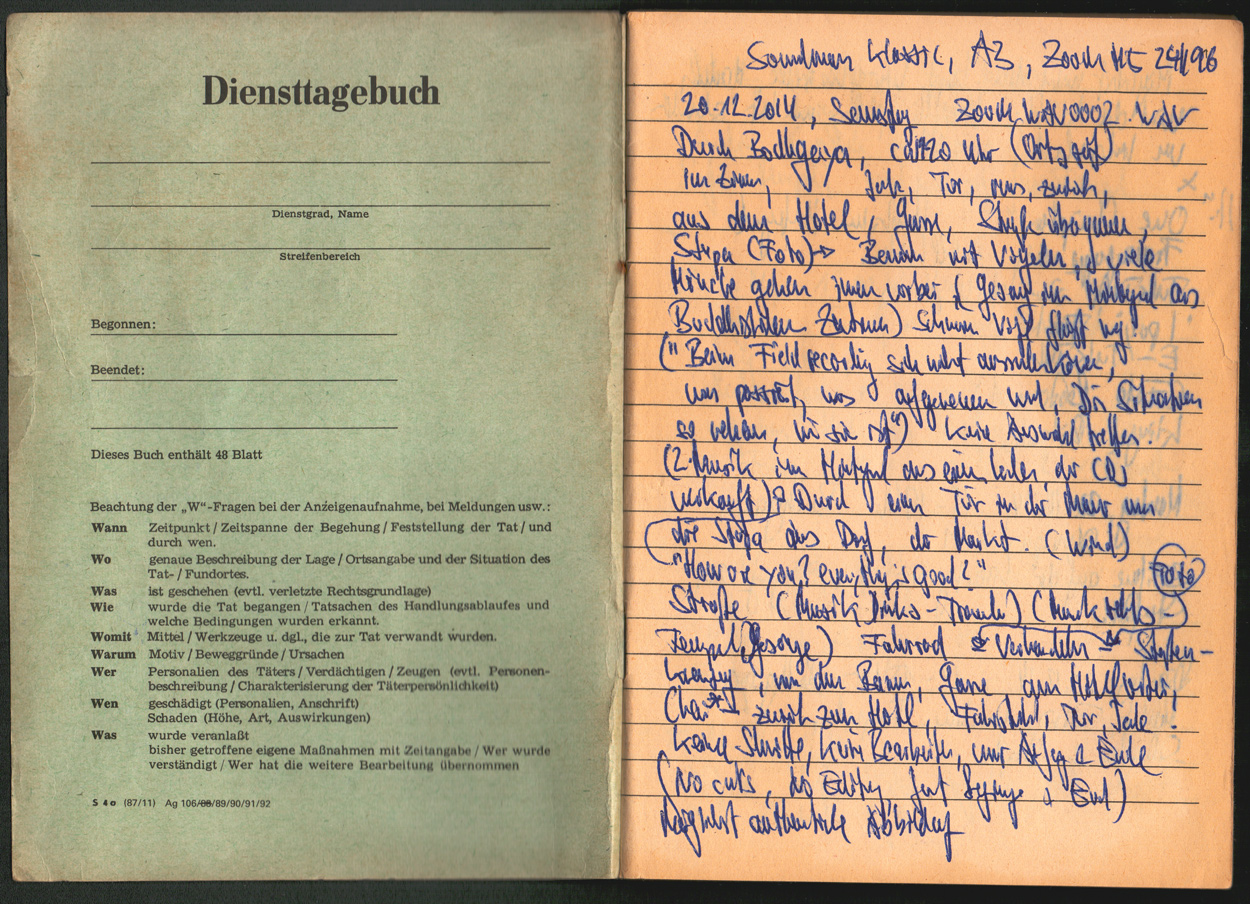 Diensttagebuch
Dienstgrad, Name
Streifenbereich
Begonnen:
Beendet:
Dieses Buch enthält 48 Blatt
Beachtung der „W"-Fragen bei der Anzeigenaufnahme, bei Meldungen usw.:
Wann Zeitpunkt / Zeitspanne der Begehung / Feststellung der Tat / und
durch wen.
Wo genaue Beschreibung der Lage / Ortsangabe und der Situation des
Tat- / Fundortes.
Was ist geschehen (evtl. verletzte Rechtsgrundlage)
Wie wurde die Tat begangen / Tatsachen des Handlungsablaufes und
welche Bedingungen wurden erkannt.
Womit Mittel / Werkzeuge u. dgl., die zur Tat verwandt wurden.
Warum Motiv / Beweggründe / Ursachen
Wer Personalien des Täters / Verdächtigen / Zeugen (evtl. Personen-
beschreibung / Charakterisierung der Täterpersönlichkeit)
Wen geschädigt (Personalien, Anschrift)
Schaden (Höhe, Art, Auswirkungen)
Was wurde veranlaßt
bisher getroffene eigene Maßnahmen mit Zeitangabe / Wer wurde
verständigt / Wer hat die weitere Bearbeitung übernommen
S 40 (87/11) Ag 106/88/89/90/91/92
Soundman Klassic, A3, Zoom H2 24/96
20.12.2014, Samstag ZOOM WAV0002.WAV
Durch Bodhgaya, Uhr (Ortszeit)
im Zimmer, Tür, raus, zurück,
aus dem Hotel, Gasse, Straße überqueren,
Stupa (Foto) → Baum mit Vögeln, viele
Mönche gehen immer vorbei (Gesang im Hintergrund aus
Buddhistischen Zentrum)
("Beim Fieldrecording sich nicht aussuchen können,
was passiert, was aufgenommen wird, Die Situation
so nehmen, wie sie ist") keine Auswahl treffen.
(2. Musik im Hintergrund aus einem Laden, der CDs
verkauft) Durch eine Tür in der Mauer um
die Stupa das Dorf, der Markt. (Wind)
"How are you? everything is good?" Foto
Straße (Musik Links - ) (Musik rechts -)
Tempel Gesänge) Fahrrad Straßen-
, um den Baum, Gasse, am Hotel vorbei,
Chai zurück zum Hotel, Fahrstuhl, Tür,
keine Schnitte, kein Bearbeiten, nur Anfang & Ende
(No cuts, no Editing, just & End)
authentische